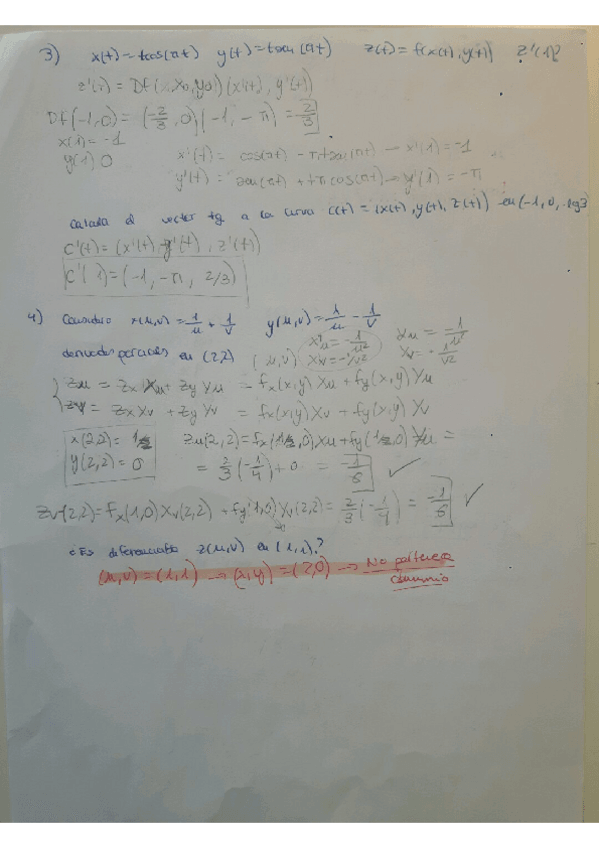 3) x(t) = tcos(πt) y(t) = tsen(πt) z(t) = f(x(t), y(t)) z'(1)?
z'(t) = Df(x0, y0)(x'(t), y'(t))
Df(-1,0) = (-2/3, 0)(-1, -π) = 2/3
x(1) = -1
y(1) 0
x'(t) = cos(πt) - πtsen(πt) → x'(1) = -1
y'(t) = sen(πt) + tπcos(πt) → y'(1) = -π
Calcula el vector tg a la curva c(t) = (x(t), y(t), z(t)) en (-1, 0, log3
C'(t) = (x'(t), y'(t), z'(t))
C'(1) = (-1, -π, 2/3)
4) x(u,v) = 1/u + 1/v y(u,v) = 1/u - 1/v
derivadas parciales en (2,2) (u,v) x'u = -1/u² Xv = -1/v² yu = -1/u² Yv = 1/v²
Zu = Zx Xu + Zy Yu = fx(x,y) Xu + fy(x,y) Yu
Zv = Zx Xv + Zy Yv = fx(x,y) Xv + fy(x,y) Yv
x(2,2) = 1
y(2,2) = 0
Zu(2,2) = fx(1,0) Xu + fy(1,0) Yu =
= 2/3 (-1/4) + 0 = -1/6 ✓
Zv(2,2) = fx(1,0) Xv(2,2) + fy(1,0) Yv(2,2) = 2/3 (-1/4) = -1/6 ✓
¿Es diferenciable z(u,v) en (1,1)?
(u,v) = (1,1) → (x,y) = (2,0) → No pertenece
dominio